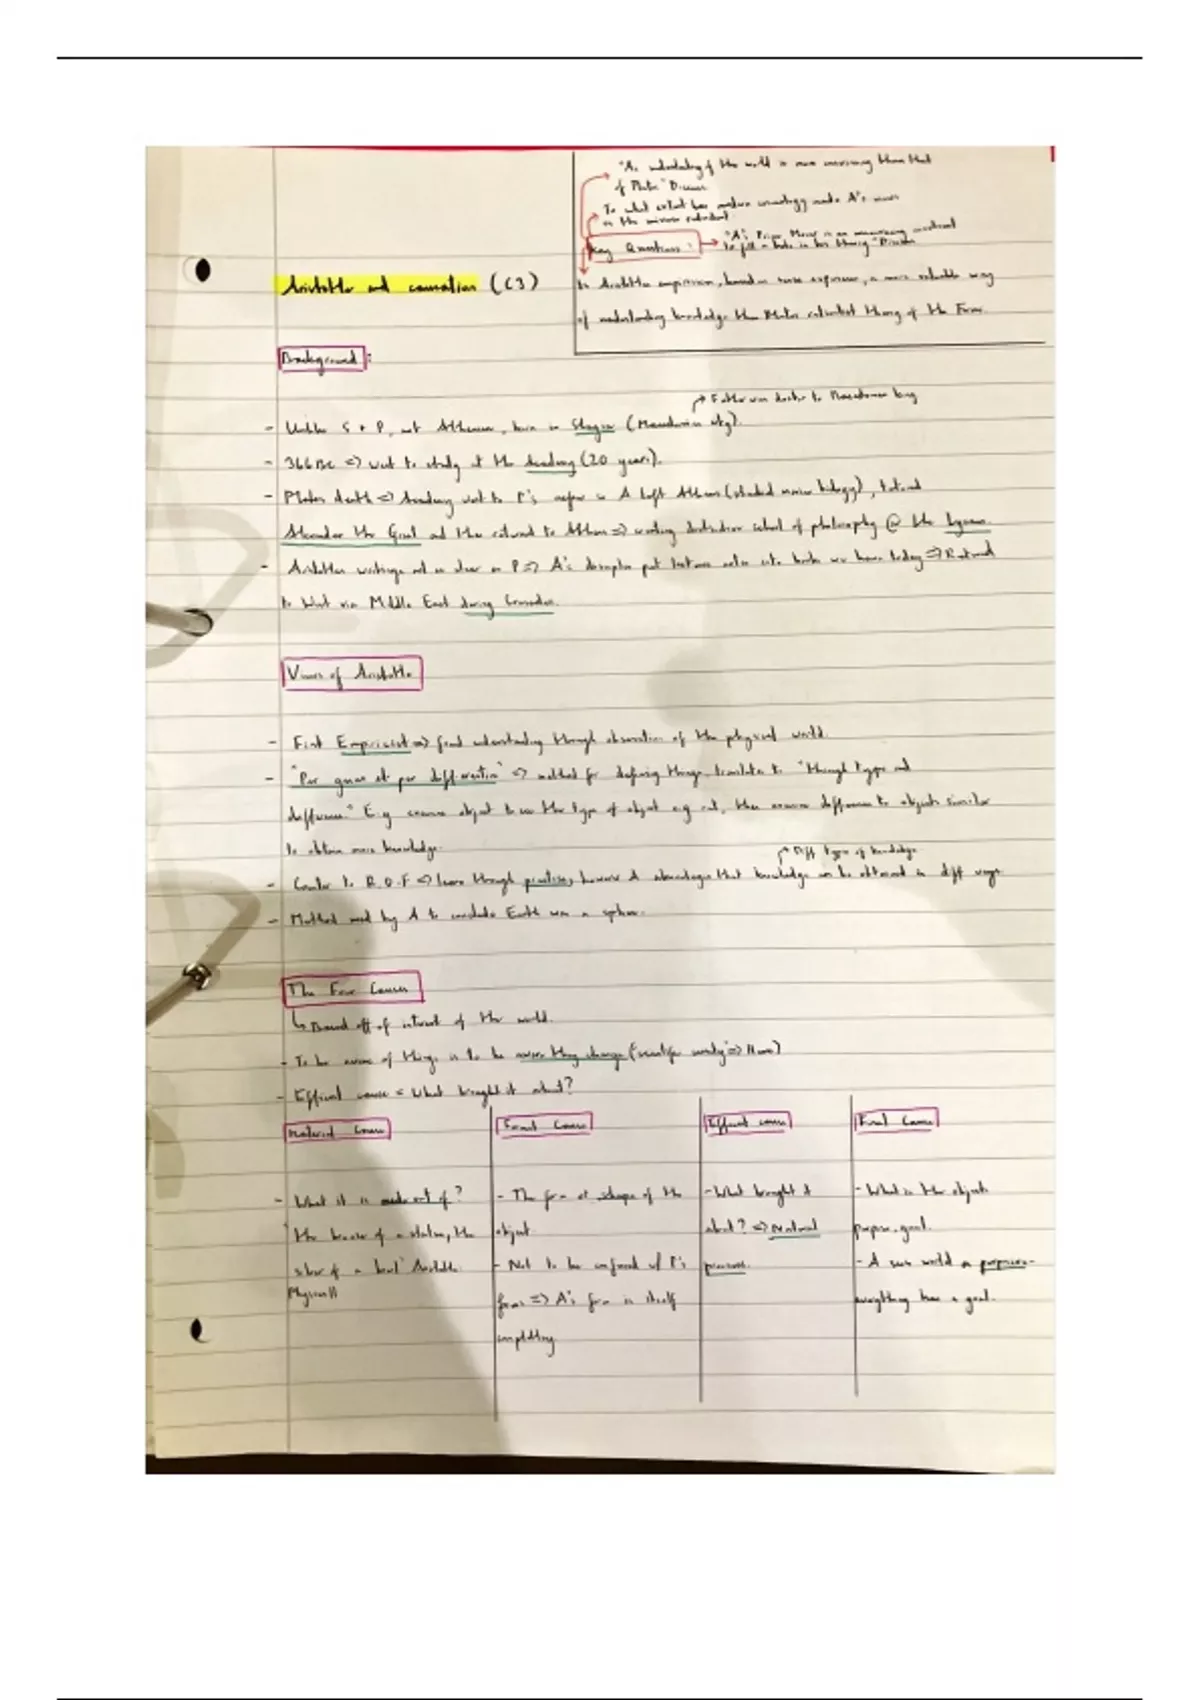 "A's understanding of the world is more convincing than that
of Plato" Discuss
To what extent has modern cosmology made A's views
on the universe redundant
Key Questions:
"A's Prime Mover is an unconvincing
to fill a hole in his theory" Discuss
Is Aristotles empiricism, based on sense experience, a more valuable way
of understanding knowledge than Platos rationalist theory of the Forms.
Aristotle and causation (C3)
Background:
Father was doctor to Macedonian king
- Unlike S + P, not Athenian, born in Stagira (Macedonian city).
- 366BC => went to study at the Academy (20 years).
- Platos death => Academy went to P's nephew so A left Athens (studied marine biology), tutored
Alexander the Great and then returned to Athens => school of philosophy @ the Lyceum.
- Aristotles writings not as clear as P => A's disciples put lecture notes into books we have today => Returned
to West via Middle East during Crusades.
Views of Aristotle
- First Empiricist => found understanding through observation of the physical world.
- "Per genus et per differentia" => method for defining things, translates to "through type and
difference." E.g examine object to see the type of object e.g cat, then examine difference to objects similar
to obtain more knowledge.
Diff types of knowledge
- Counter to R.O.F => learn through practice, however A that knowledge can be obtained in diff ways
- Method used by A to conclude Earth was a sphere.
The Four Causes
Based off of interest of the world.
- To be aware of things is to be aware they change
- Efficient cause = What brought it about?
Material Cause
- What it is made out of?
"the bronze of a statue, the
silver of a bowl" Aristotle
Physics II
Formal Cause
- The form or shape of the
object.
- Not to be confused w/ P's
forms => A's form is itself
Efficient cause
- What brought it
about? => Natural
processes.
Final Cause
- What is the objects
purpose, goal.
- A saw world as purposive-
everything has a goal.